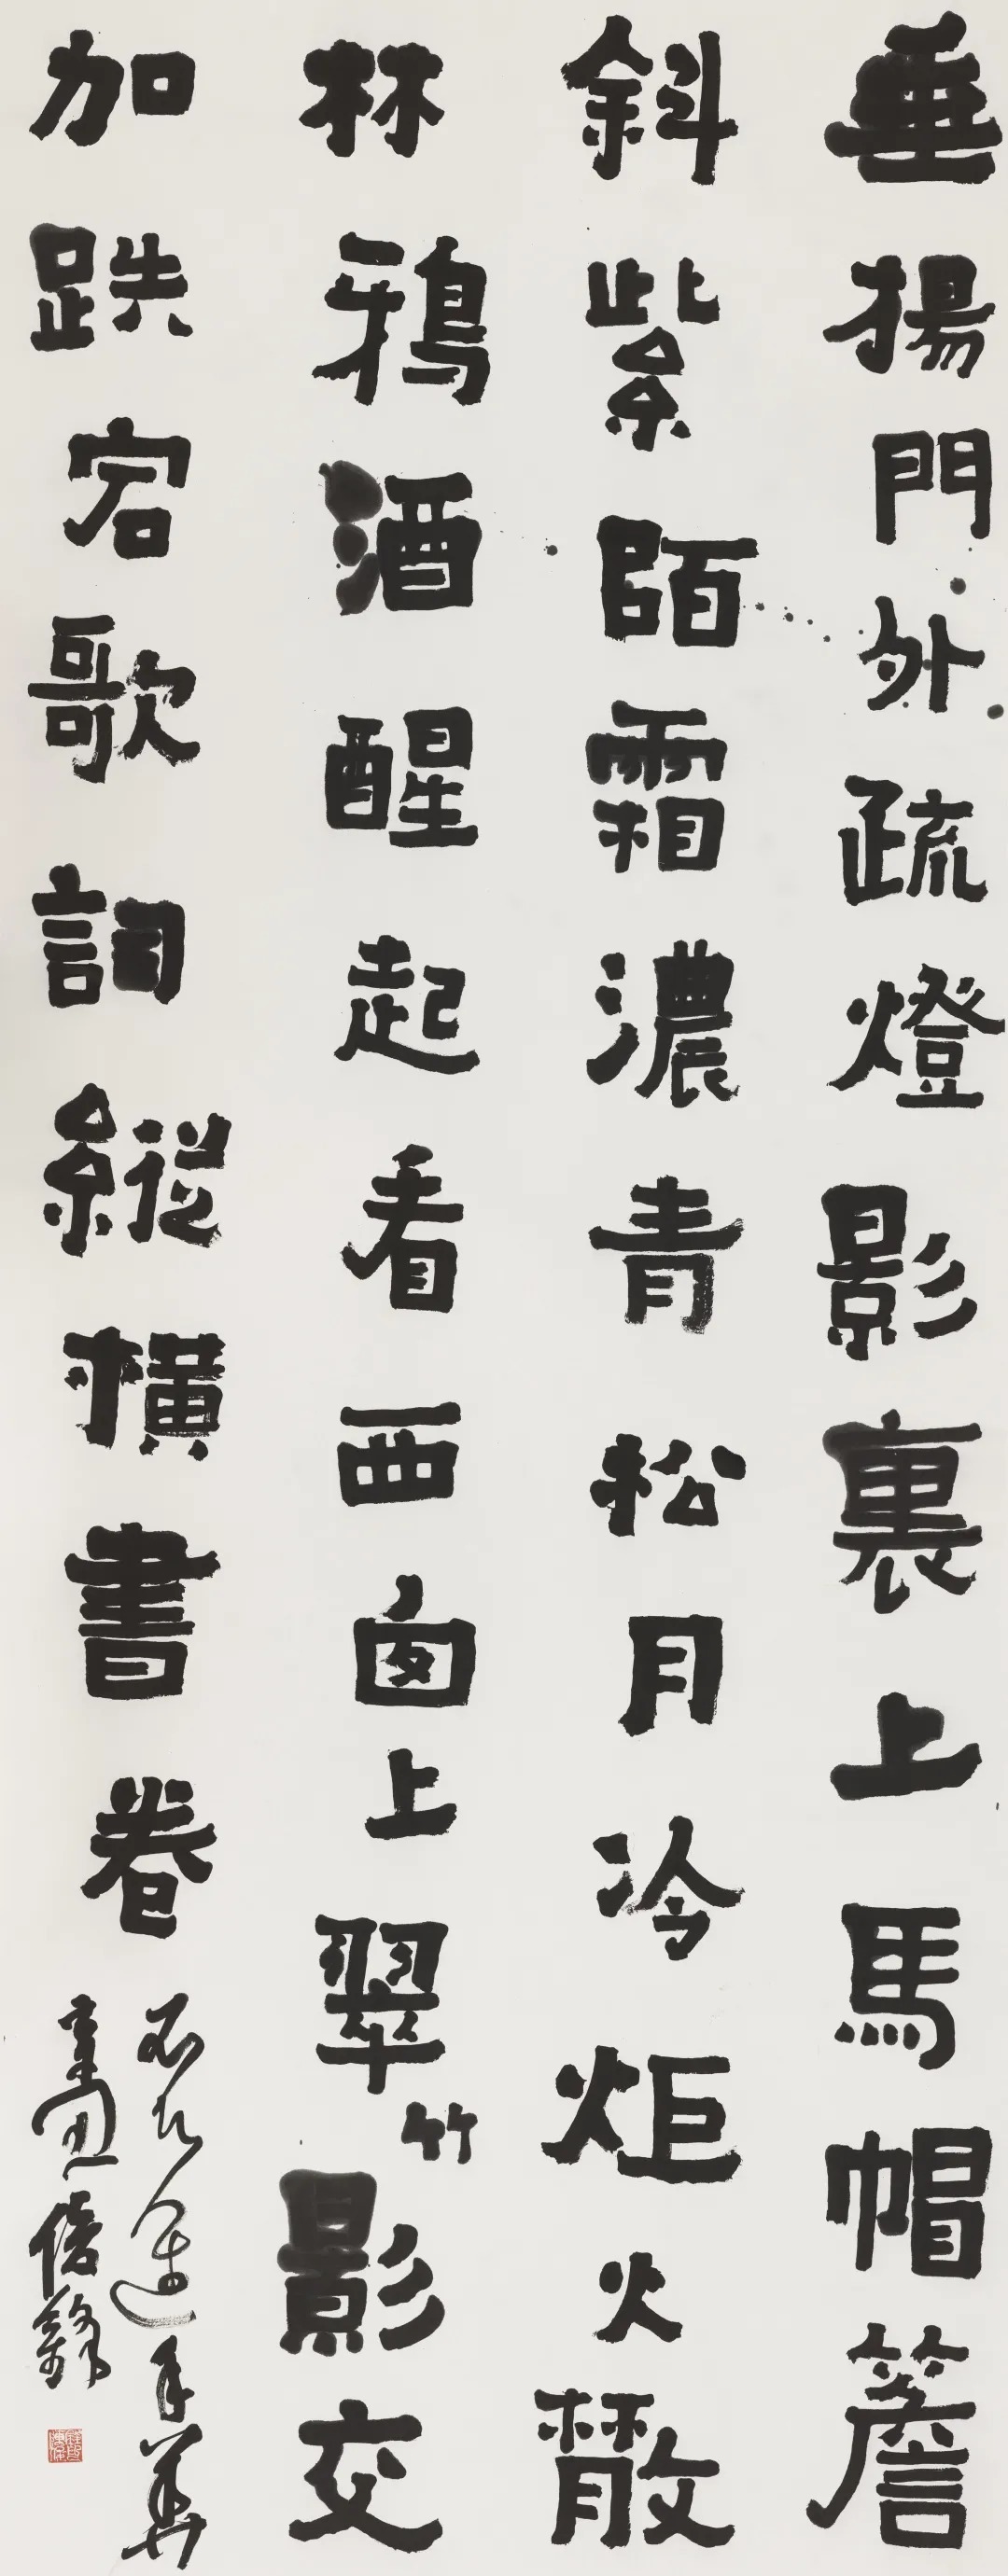 垂揚門外疏燈影裏上馬帽簷
斜紫陌霜濃青松月冷炬火散
林鴉酒醒起看西囱上翠竹影交
加跌宕歌詞縱橫書卷
不與遣年華